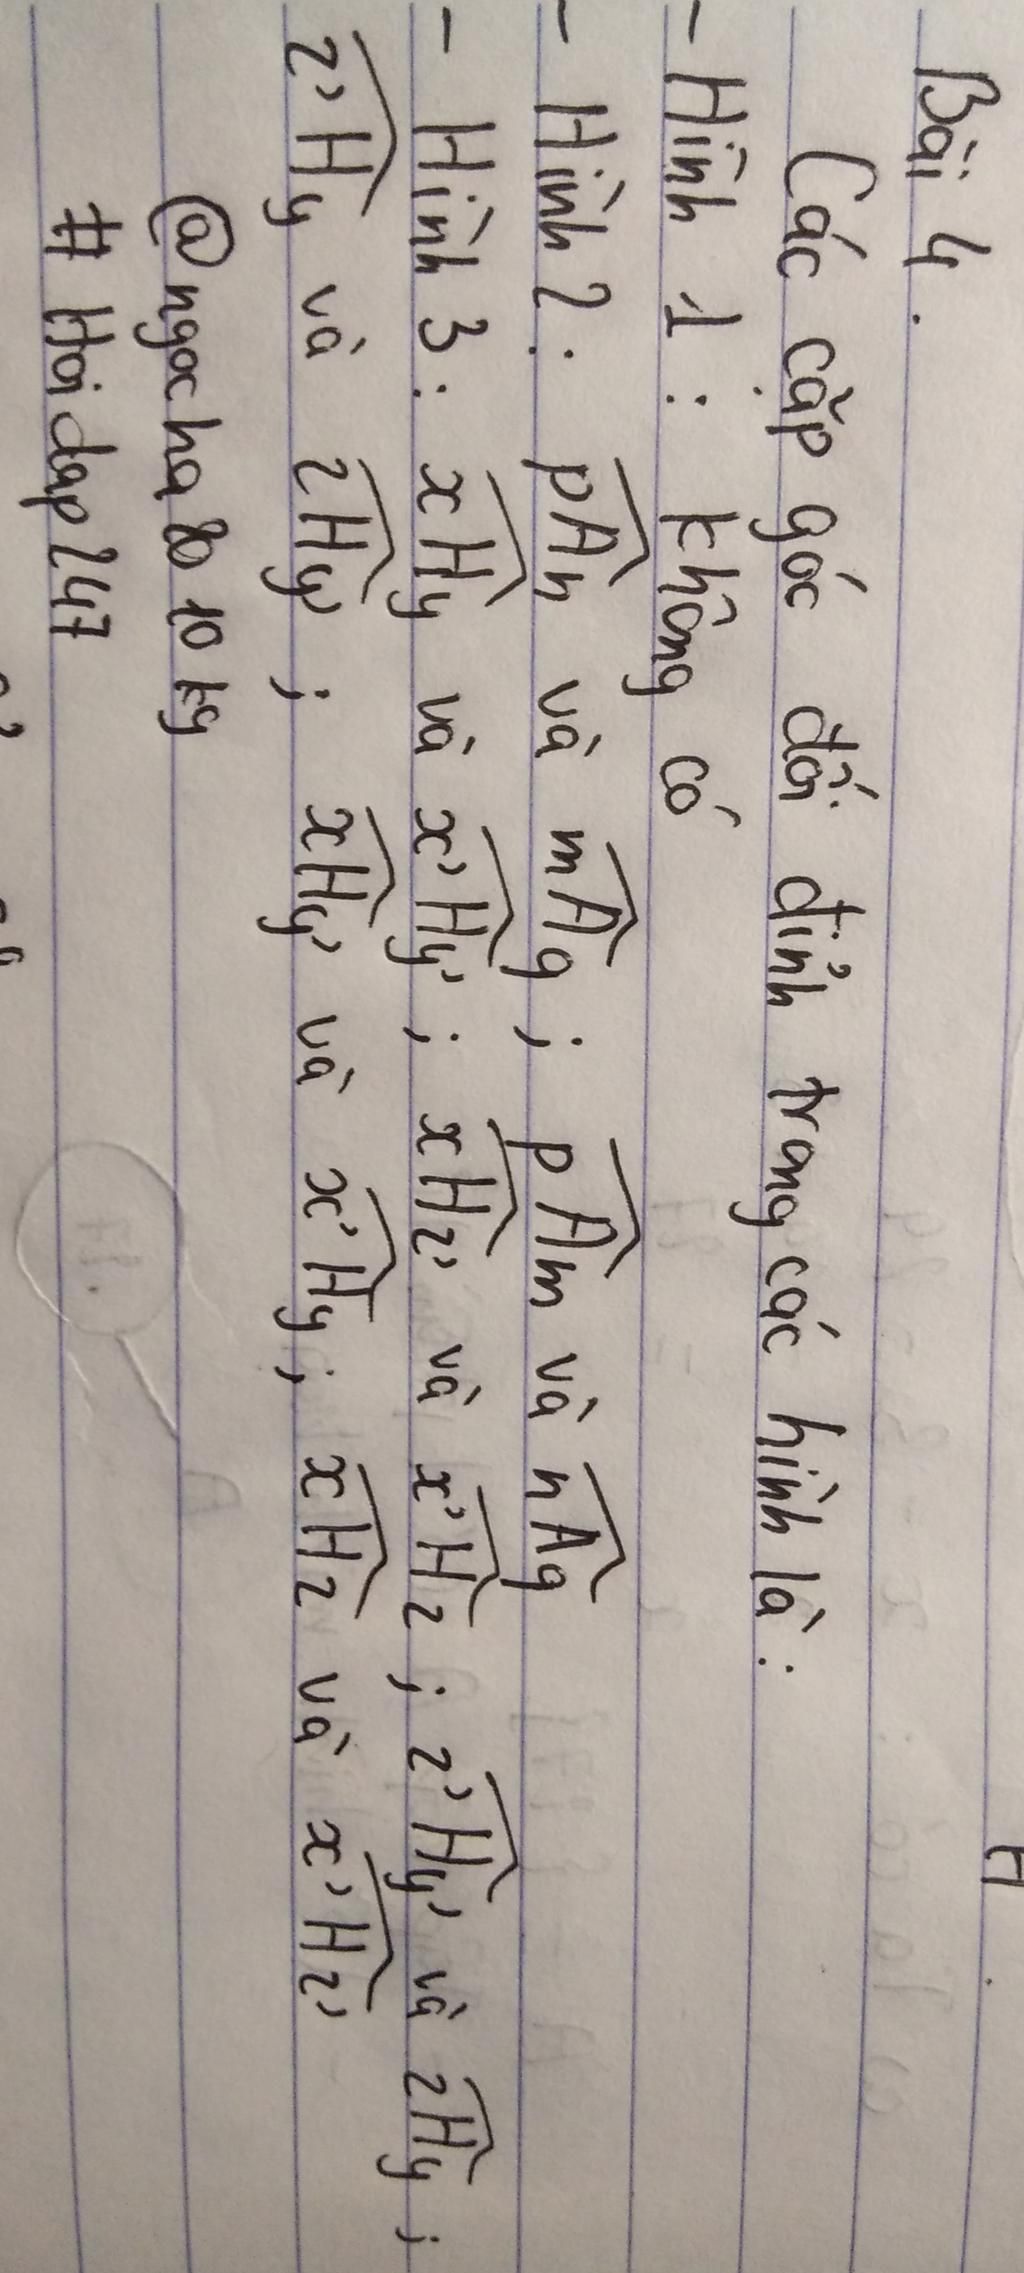 Bài 4.
Các cặp góc đối đỉnh trong các hình là:
- Hình 1: không có
- Hình 2: pAn và mAq; pAm và nAq
- Hình 3: xHy và x'Hy'; xHz' và x'Hz; z'Hy' và zHy;
z'Hy và zHy'; xHy' và x'Hy; xHz và x'Hz'
@ngocha8010kg
# Hoidap247